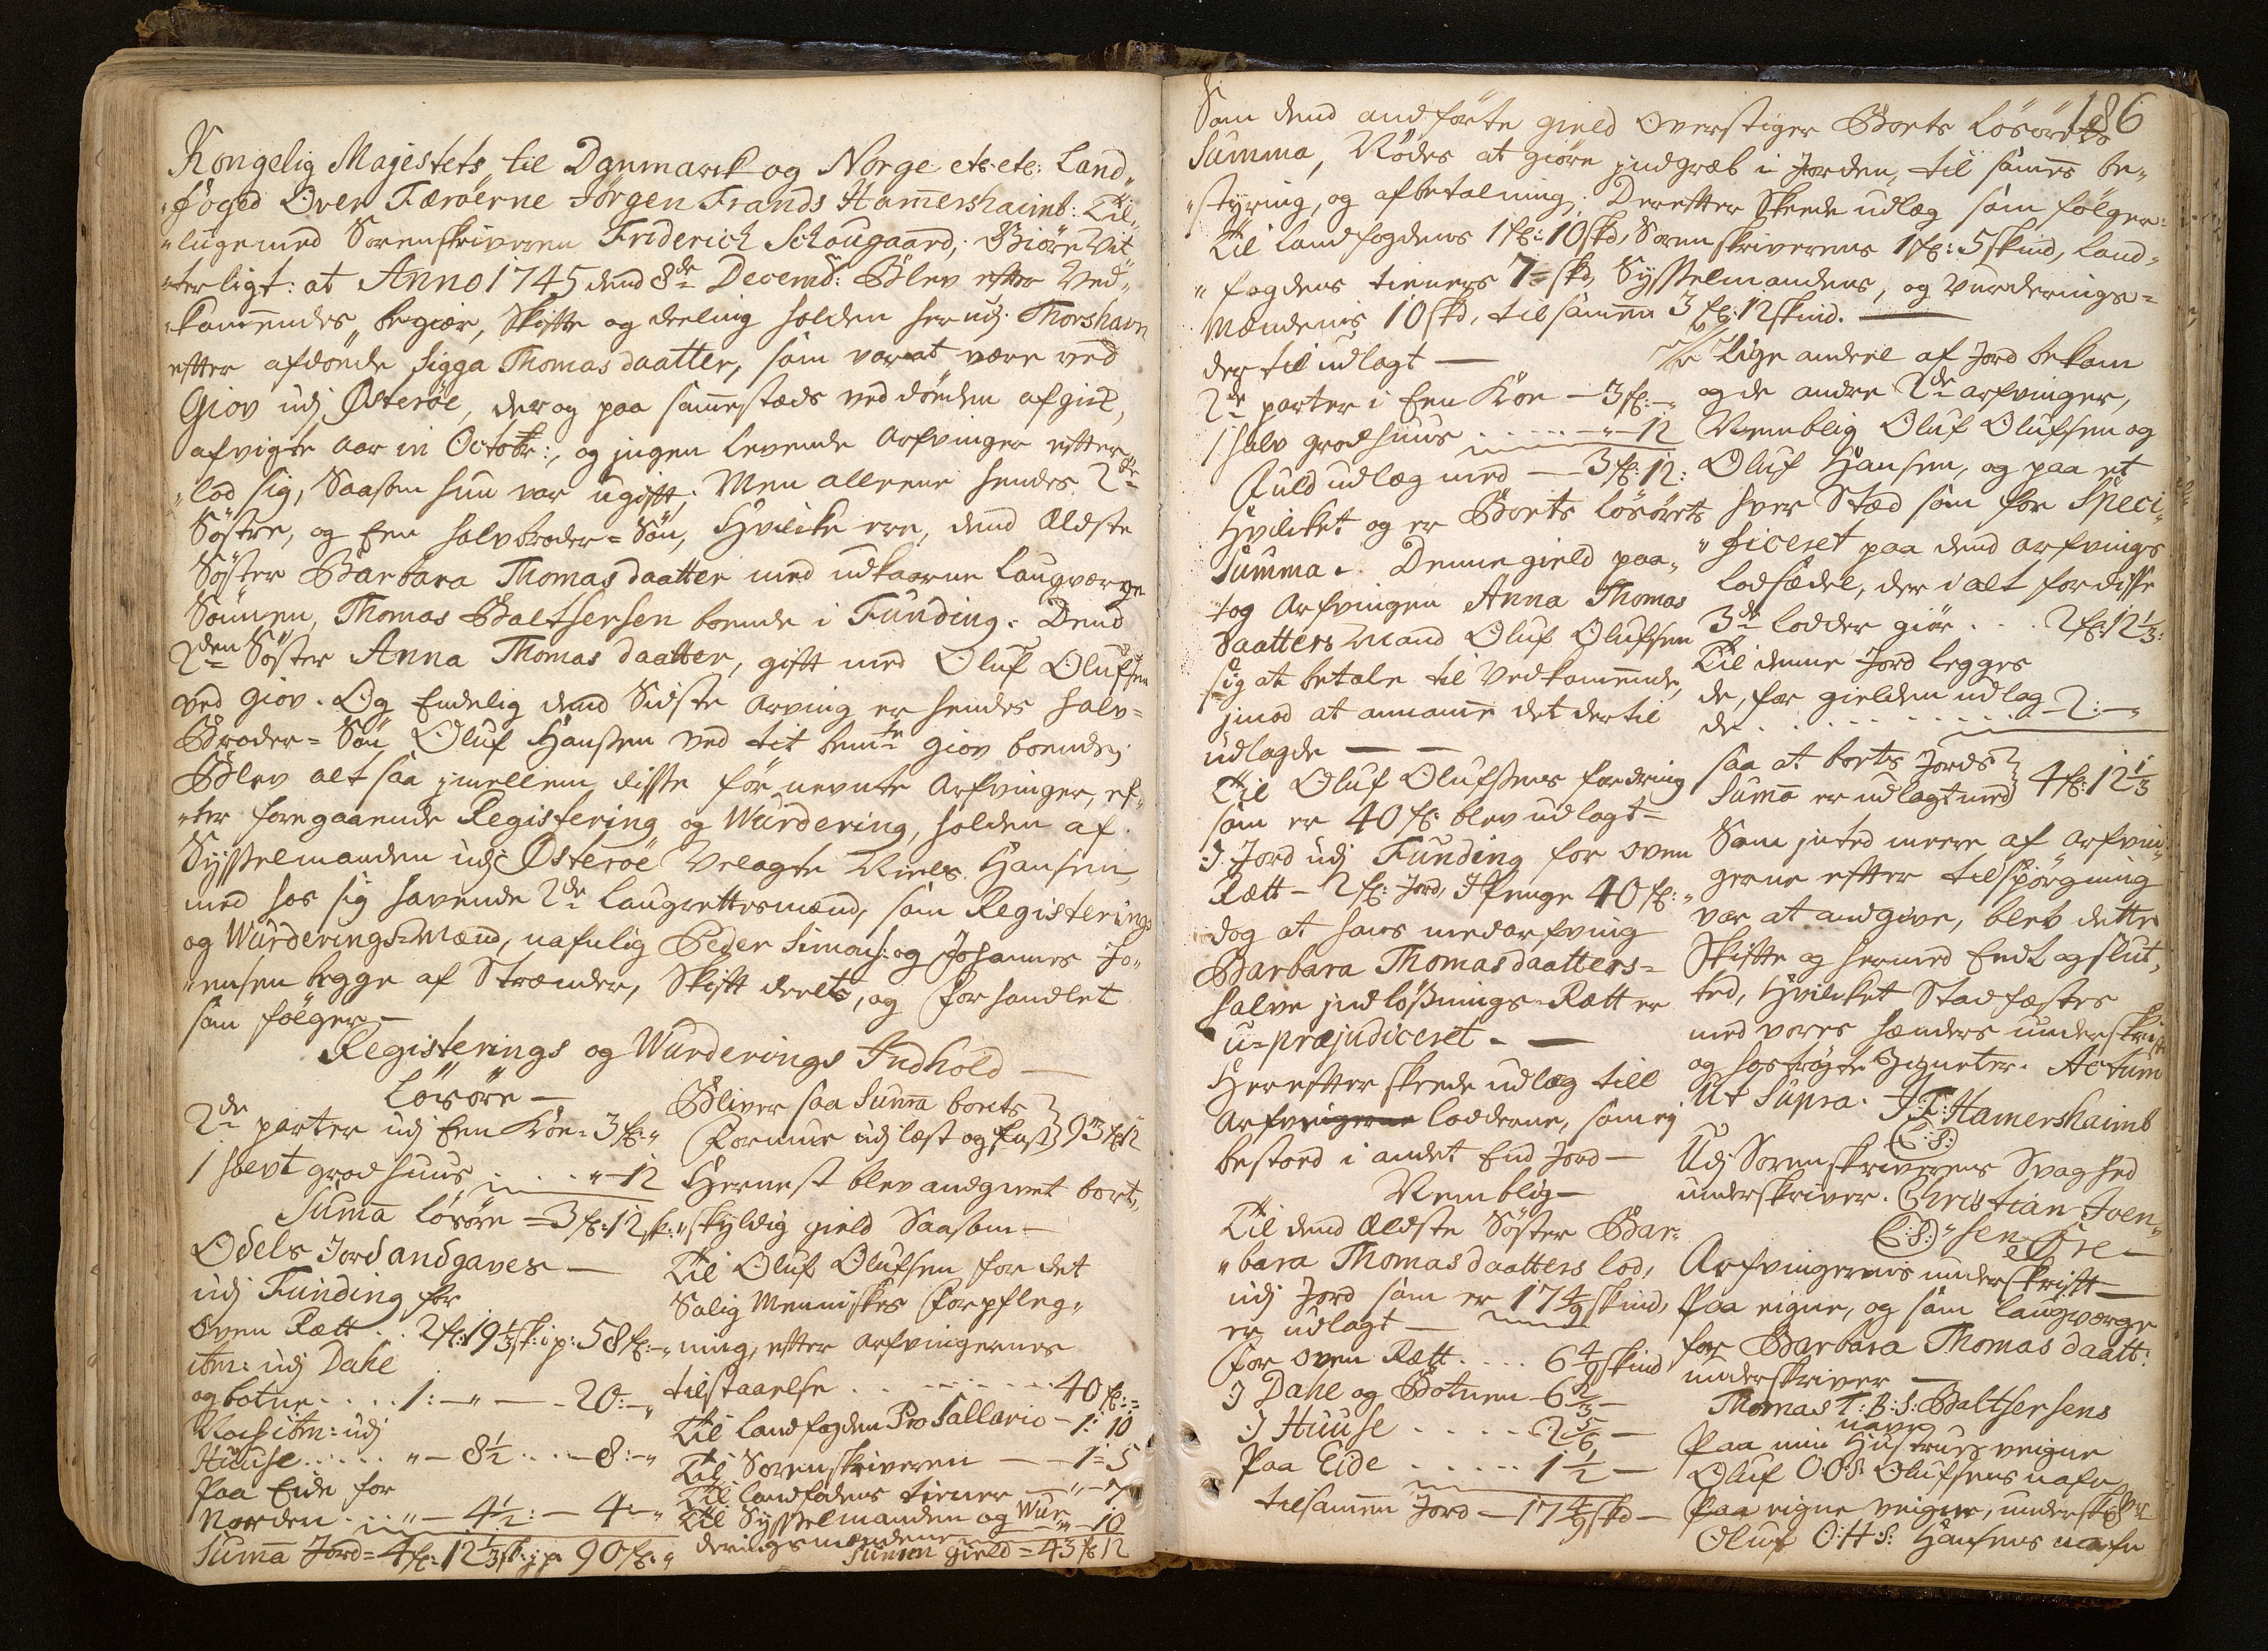 Kongelig Majestets til Danmarck og Norge etc: etc: Land„
„foged Over Færöerne Jörgen Frands Ham̄ershaimb: Til„
„lige med Sorenskriveren Friderich Schougaard, Giöre Vit„
„terligt: at Anno 1745 dend 8de Decemb: Blev efter Ved„
„kom̄endes begiær, Skifte og deeling holden her udj Thorshavn
efter afdöde Sigga Thomasdaatter, som var at være ved
Giov udj Österöe, der og paa sam̄estæds ved döden afgick,
afvigte aar in Octobr:, og jngen levende Arfvinger efter„
„lod sig, Saasom hun var ugift; Men alleene hendes 2de
Söstre, og Een halvbroder=Sön, Hvilcke ere, dend Ældste
Söster Barbara Thomasdaatter med udkaarne Laugværge
Sönnen, Thomas Baltsersen boende i Funding. Dend
2den Söster Anna Thomasdaatter, gift med Oluf Olufsen
ved Giov. Og Endelig dend Sidste Arving er hendes halv=
Broder=Sön Oluf Hansen ved tit bemte Giov boende;
Blev alt saa jmellem disse för nevnte Arfvinger, ef„
„ter foregaaende Registering og Wurdering, holden af
Sysselmanden udj Österöe Velagte Niels Hansen,
med hos sig havende 2de Laugrettesmænd, som Registerings
og Wurderings=Mænd, nafnlig Peder Simons: og Johannes Jo„
„ensen begge af Strænder, Skift deelt, og forhandlet
som fölger —
Registerings og Wurderings Indhold —
Lösöre —
2de parter udj Een Koe = 3 fl: „
1 halvt grodhuus . . . „ — 12
Sum̄a Lösöre = 3 fl: 12 sk:
Odels Jord andgaves —
udj Funding for
Oven Rætt . . 2 fl: 19 1/3 sk: jp: 58 fl: „
itm: udj Dahe
og botne . . . . 1: — „ — — 20: — „
Noch itm: udj
Huuse . . . . . „ — 8 1/2 . . . — 8: — „
Paa Eide for
Norden . . . „ — 4 1/2: — 4: — „
Sum̄a Jord = 4 fl: 12 1/3 sk: jp: 90 fl: „
Bliver saa Sum̄a boets
Formue udj löst og fast 93 fl: 12
Hernest blev andgivet bort„
„skyldig gield Saasom —
Til Oluf Olufsen for det
Salig Menniskes Forpfleg„
„ning, efter Arfvingernes
tilstaaelse . . . . . . . . 40 fl: =
Til Landfogden Pro Sallario — 1: 10
Til Sorenskriveren — — 1 = 5
Til landfodens tiener — „ — 7
Til Sysselmanden og Wur„
deringsmændene — „ — 10
Sum̄en gield = 43 fl: 12
186
Som dend andförte gield Overstiger Boets Lösöres
Summa, Nödes at giöre jndgreb i Jorden, til sam̄es be„
„styring, og afbetalning; Derefter Skeede udlæg som fölger:
Til Landfogdens 1 fl: 10 skd, Sorenskriverens 1 fl: 5 skind, Land„
„fogdens tieners 7 = skd, Sysselmandens, og Vurderings=
Mændenis 10 skd, tilsam̄en 3 fl: 12 skind. ——
der til udlagt —
2de parter i Een Koe — 3 fl: — „
1 halv grodhuus . . . . . — „ — 12
Fuld udlæg med — 3 fl: 12:
Hvilcket og er Boets Lösörets
Summa. Denne gield paa„
„tog Arfvingen Anna Thomas
daatters Mand Oluf Olufsen
sig at betale til Vedkom̄ende,
jmod at annam̄e det dertil
udlagde — —
Til Oluf Olufsens fordring
som er 40 fl: blev udlagt =
I Jord udj Funding for oven
Rætt — 2 fl: Jord, I Penge 40 fl: „
dog at hans medarfving
Barbara Thomasdaatters=
halve jndlösnings-Rætt er
u=præjudiceret. —
Herefter skeede udlæg till
Arfvingerne lodderne, som ej
bestoed i andet End Jord —
Nemblig —
Til dend Ældste Söster Bar„
„bara Thomasdaatters lod,
udj Jord som er 17 4/9 skind,
er udlagt —
for oven Rætt . . . . 6 4/9 skind
I Dahe og Botnen — 6 2/3 —
I Huuse . . . . . 2 5/6 —
Paa Eide . . . . . 1 1/2 —
tilsam̄en Jord — 17 4/9 skd —
Lige andeel af Jord bekom
og de andre 2de Arfvinger,
Nemblig Oluf Olufsen og
Oluf Hansen, og paa et
hver Sted som for Speci„
„ficeret paa dend Arfvings
lodsædel, der i alt for disse
3de lodder giör . . . 2 fl: 12 1/3:
Til denne Jord legges
de, for gielden udlag„
de . . . . . . . . 2: — „
saa at boets Jords
Sum̄a er udlagt med 4 fl: 12 1/3
Som jnted meere af Arfvin„
gerne efter tilspörgning
var at andgive, bleb dette
Skifte og hermed Endt og slut„
ted, Hvilcket Stadfæstes
med vores hænders underskrift
og hoströgte Zigneter. Actum
Ut Supra. J: F: Ham̄ershaimb
(L:S:)
Udj Sorenskriverens Svaghed
underskriver. Christian Joen„
(L:S:) „sen Öre —
Arfvingernis underskrift —
Paa eigne, og som laugværge
for Barbara Thomasdaatt:
underskriver —
Thomas T: B: S: Baltsersens
navn
Paa min Hustrues veigne
Oluf O: O: S: Olufsens nafn
Paa eigne veigne, underskriver
Oluf O: H: S: Hansens nafn